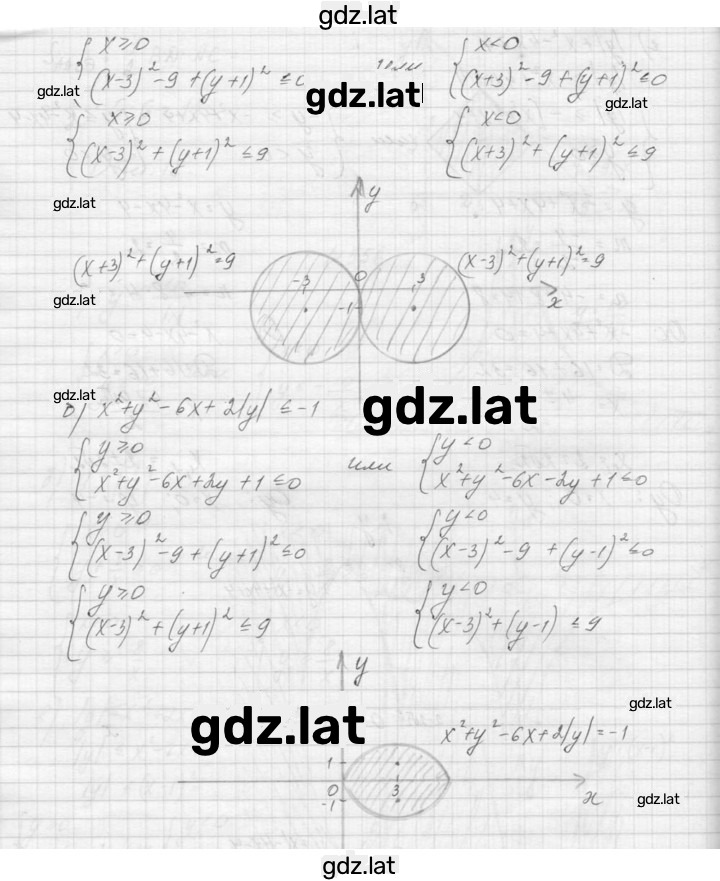 gdz.lat
{ x≥0 или { x<0
(x-3)²-9+(y+1)² ≤0 (x+3)²-9+(y+1)²≤0
gdz.lat gdz.lat gdz.lat
{ x≥0 { x<0
(x-3)²+(y+1)² ≤9 (x+3)²+(y+1)² ≤9
gdz.lat
y
(x+3)²+(y+1)²=9 (x-3)²+(y+1)²=9
-3 0 3
gdz.lat -1 x
в) x²+y²-6x+2|y| ≤ -1 gdz.lat
{ y≥0 или { y<0
x²+y²-6x+2y+1≤0 x²+y²-6x-2y+1≤0
{ y≥0 { y<0
(x-3)²-9+(y+1)²≤0 (x-3)²-9+(y-1)²≤0
{ y≥0 { y<0
(x-3)²+(y+1)² ≤9 (x-3)²+(y-1) ≤9
y
gdz.lat gdz.lat
x²+y²-6x+2|y|=-1
1
0 3 x
-1 gdz.lat
gdz.lat